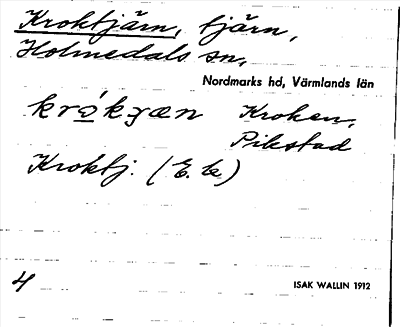 Kroktjärn, tjärn,
Holmedals sn,
Nordmarks hd, Värmlands län
Kroken,
Pikstad
Kroktj. (E.k)
4
ISAK WALLIN 1912